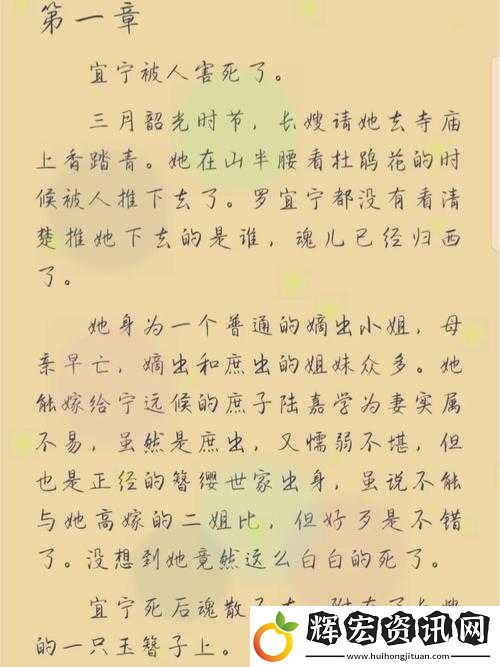 第一章
宜宁被人害死了。
三月韶光时节，长嫂请她去寺庙
上香踏青。她在山半腰看杜鹃花的时
候被人推下去了。罗宜宁都没有看清
楚推她下去的是谁，魂儿已经归西
了。
她身为一个普通的嫡出小姐，母
亲早亡，嫡出和庶出的姐妹众多。她
能嫁给宁远候的庶子陆嘉学为妻实属
不易，虽然是庶出，又懦弱不堪，但
也是正经的簪缨世家出身，虽说不能
与她高嫁的二姐比，但好歹是不错
了。没想到她竟然这么白白的死了。
宜宁死后魂散
的一只玉簪子上。
辉宏资讯网
www.huihongjituan.com